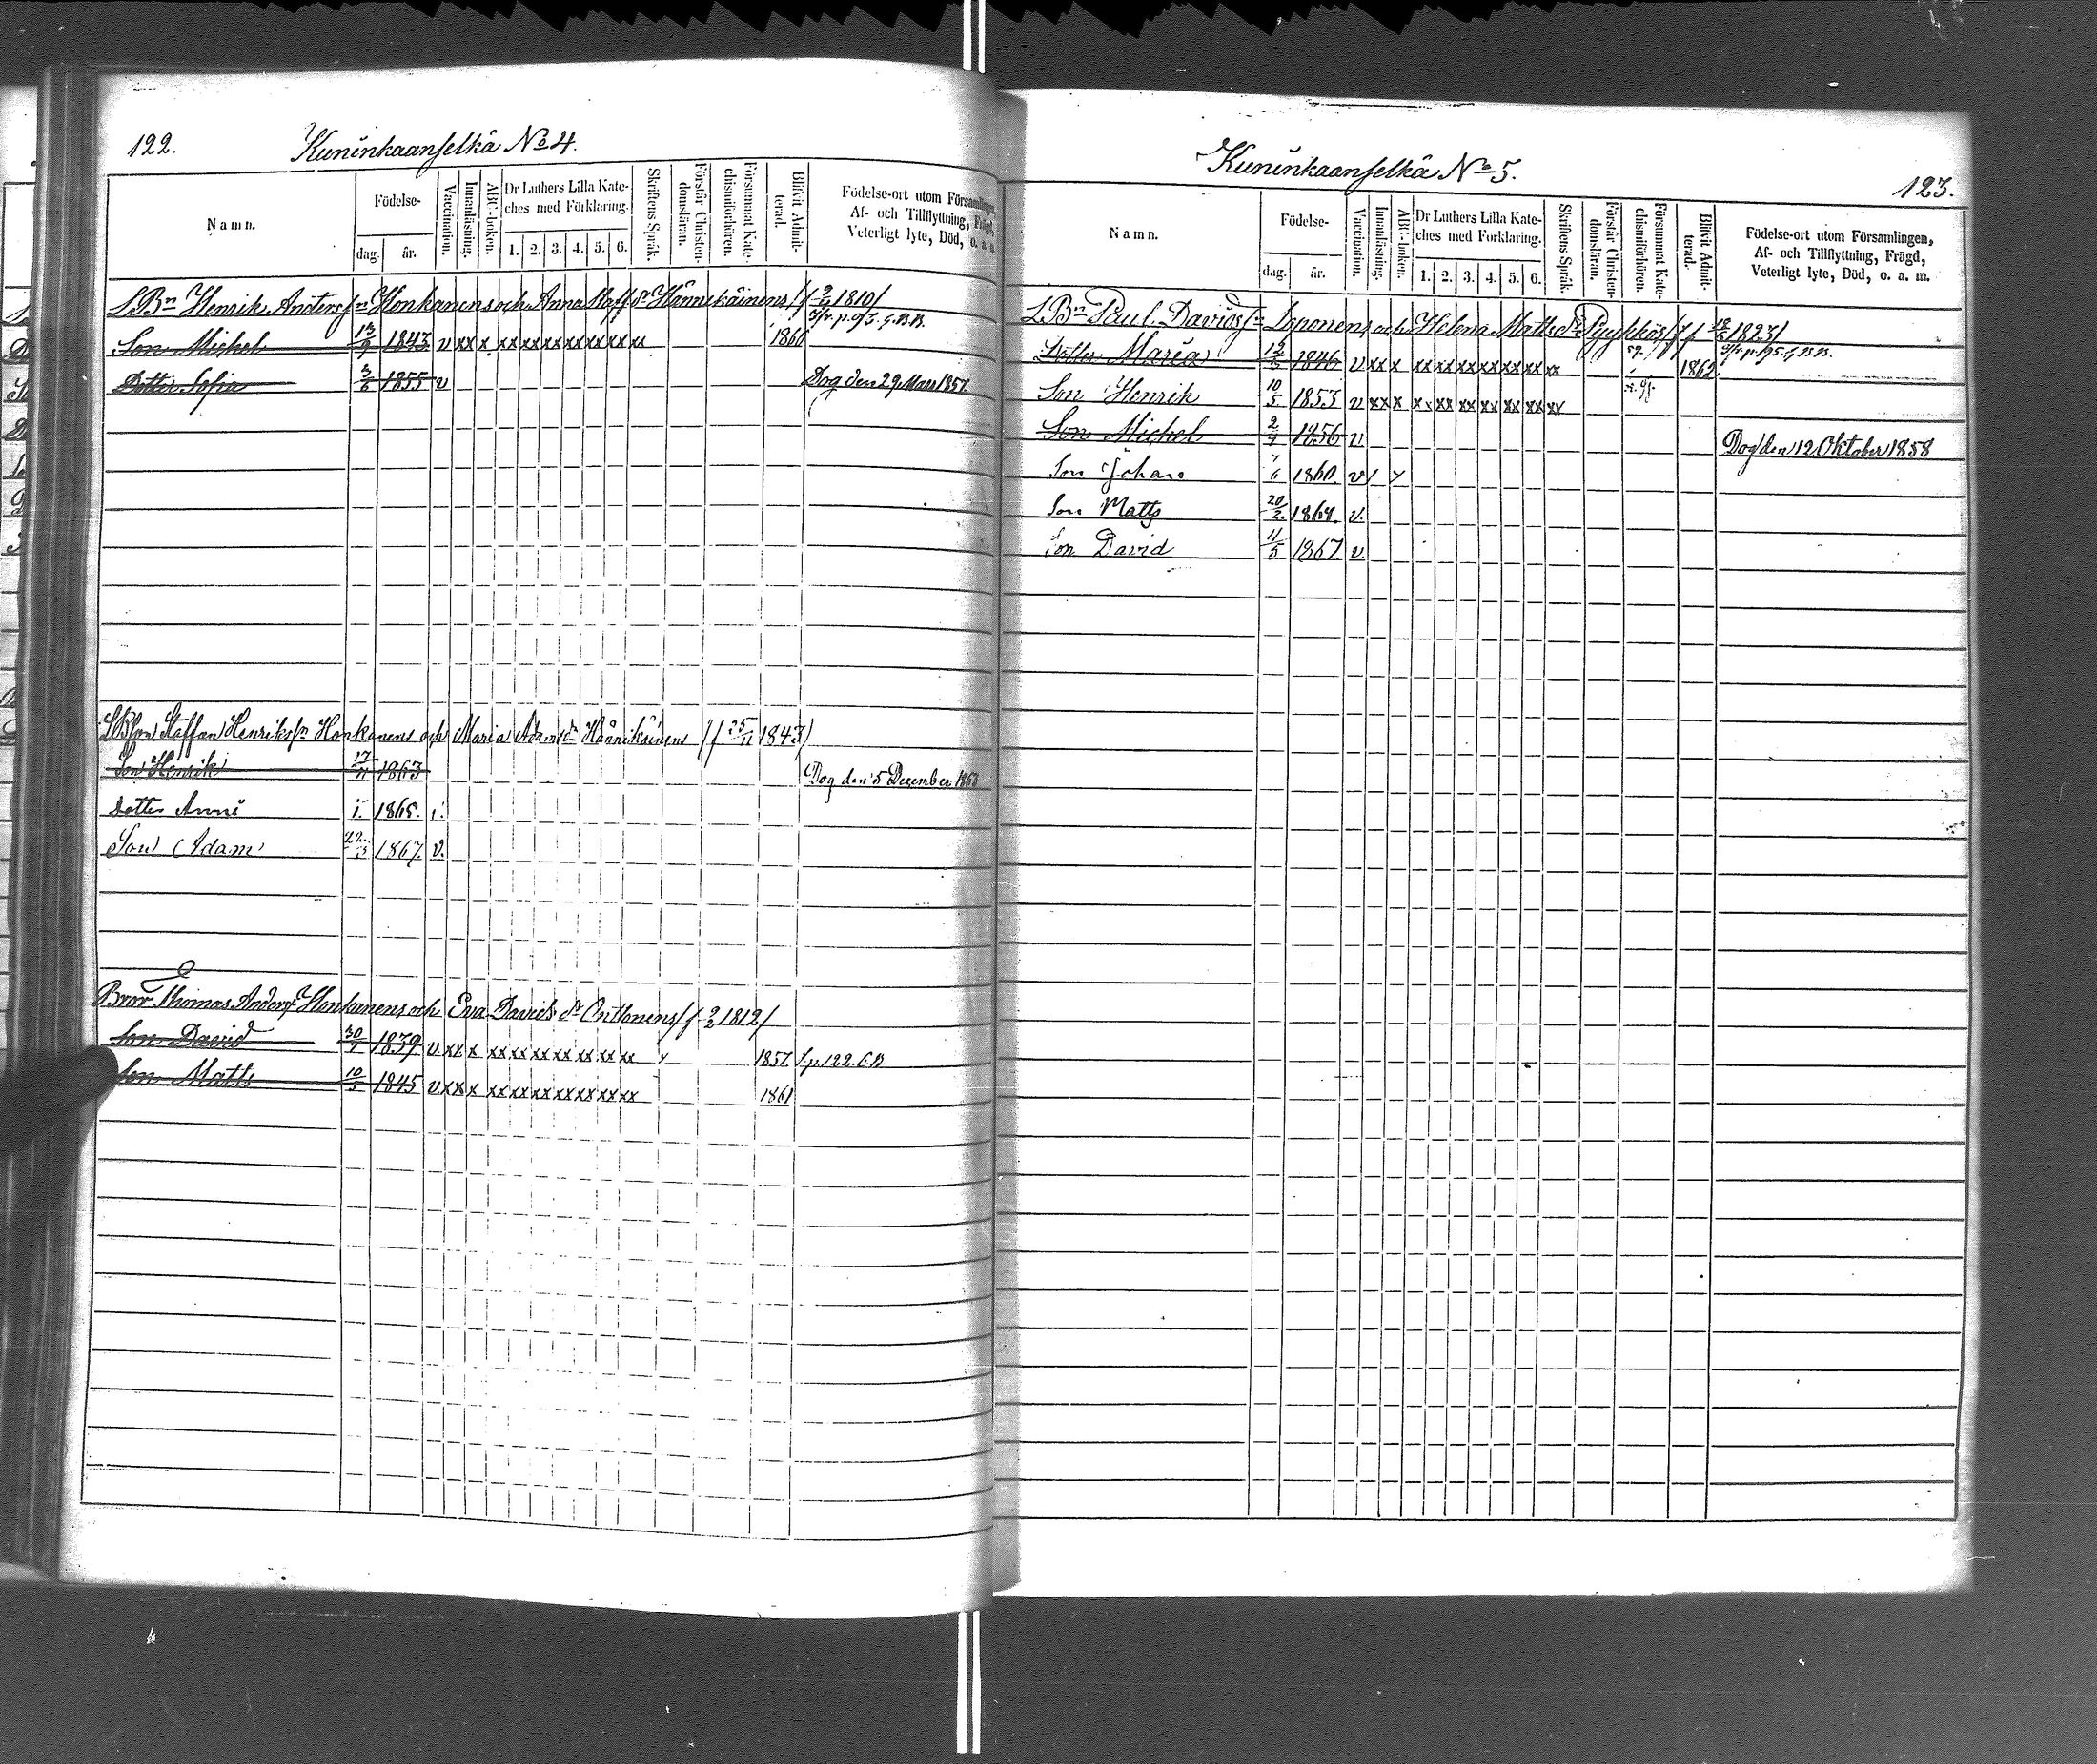 122.
Kuninkaanselkä No 4.
Namn.
Födelse-
dag.
år.
Vaccination.
Innanläsning.
ABC-boken.
Dr Luthers Lilla Kate-
ches med Förklaring.
1. 2. 3. 4. 5. 6.
Skriftens Språk.
Förstår Christen-
domsläran.
Försummat Kate-
chismiförhören.
Blifvit Admit-
terad.
Födelse-ort utom Församlingen,
Af- och Tillflyttning, Frägd,
Veterligt lyte, Död, o. a. m.
LBn Henrik Andersson Honkanens och Anna Matsdr Hännikäinens /f 1810/
Son Michel 13/9 1843 v xx x xx xx xx xx xx xx xx 1860
Dotter Sofia 3/6 1855 v Dog den 29 Mars 1857
LBson Staffan Henriksn Honkanens och Maria Adamsdr Hännikäinens /f 25/11 1843/
Son Henrik 17/11 1863 Dog den 5 December 1863
Dotter Anni 1865. v.
Son Adam 1867. v.
Bror Thomas Anders. Honkanens och Eva Davidsdr Onttonens /f 2/2 1812/
Son David 30/1 1839 v xx x xx xx xx xx xx xx xx 1857 f.p. 122. C.B.
Son Matts 10/5 1845 v xx x xx xx xx xx xx xx xx 1861
Kuninkaanselkä No 5.
123.
Namn.
Födelse-
dag.
år.
Vaccination.
Innanläsning.
ABC-boken.
Dr Luthers Lilla Kate-
ches med Förklaring.
1. 2. 3. 4. 5. 6.
Skriftens Språk.
Förstår Christen-
domsläran.
Försummat Kate-
chismiförhören.
Blifvit Admit-
terad.
Födelse-ort utom Församlingen,
Af- och Tillflyttning, Frägd,
Veterligt lyte, Död, o. a. m.
LBn Paul Davidssn Loponens och Helena Mattsdr Pyykkös /f 1823/
Dotter Maria 1846 v xx x xx xx xx xx xx xx xx 1862
Son Henrik 10/5 1853 v xx x xx xx xx xx xx xx xx
Son Michel 1856 v. Dog den 12 Oktober 1858
Son Johan 7/6 1860. v
Son Matts 20/2. 1864. v.
Son David 11/5 1867 v.